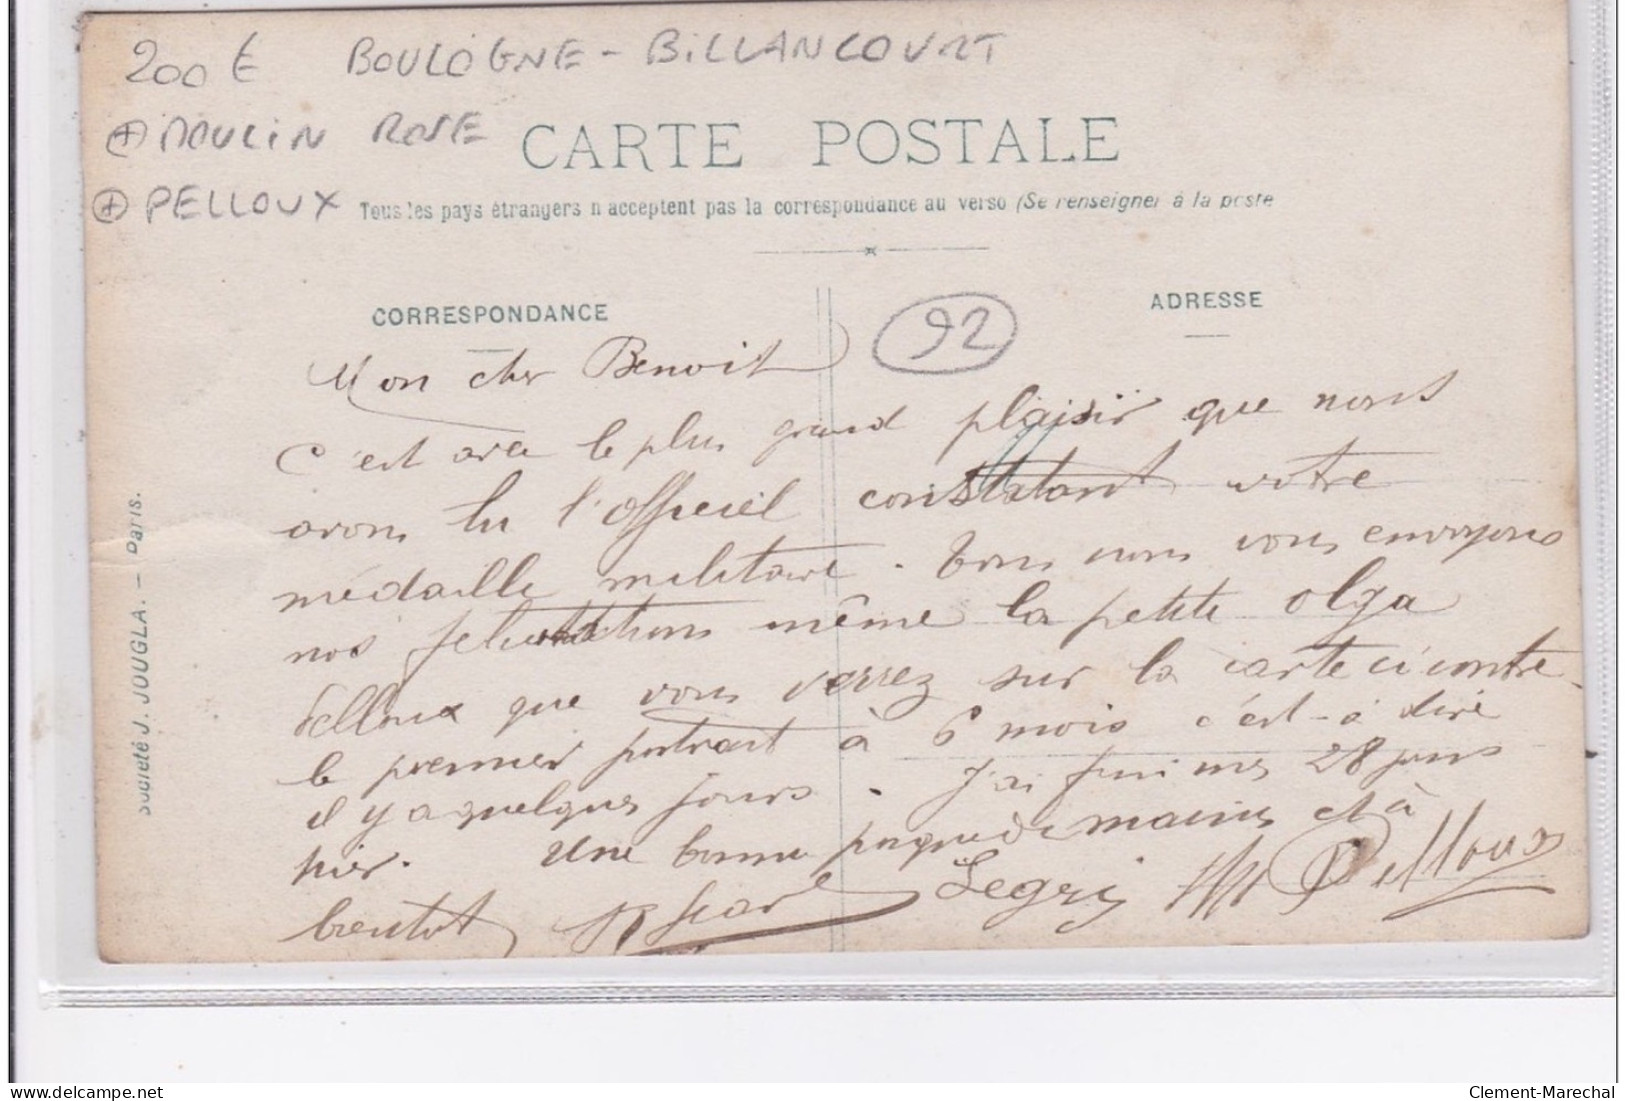 200 € BOULOGNE - BILLANCOURT
+ MOULIN ROSE
+ PELLOUX
CARTE POSTALE
Tous les pays étrangers n acceptent pas la correspondance au verso (Se renseigner à la poste
CORRESPONDANCE
ADRESSE
92
Mon cher Benoit
C'est avec le plus grand plaisir que nous
avons lu l'officiel constatant votre
médaille militaire. Tous nous vous envoyons
nos félicitations même la petite Olga
Pelloux que vous verrez sur la carte ci contre
le premier portrait à 6 mois c'est-à dire
il y a quelques jours. J'ai fini mes 28 jours
hier. Une bonne poignée de mains et à
bientôt Pelloux
Société J. JOUGLA. — Paris.
delcampe.net
Clement-Marechal